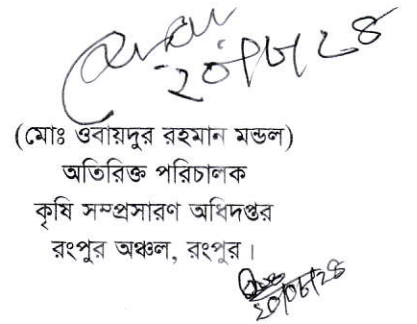 ২০/০৮/২৪
(মোঃ ওবায়দুর রহমান মন্ডল)
অতিরিক্ত পরিচালক
কৃষি সম্প্রসারণ অধিদপ্তর
রংপুর অঞ্চল, রংপুর।
২০/০৮/২৪